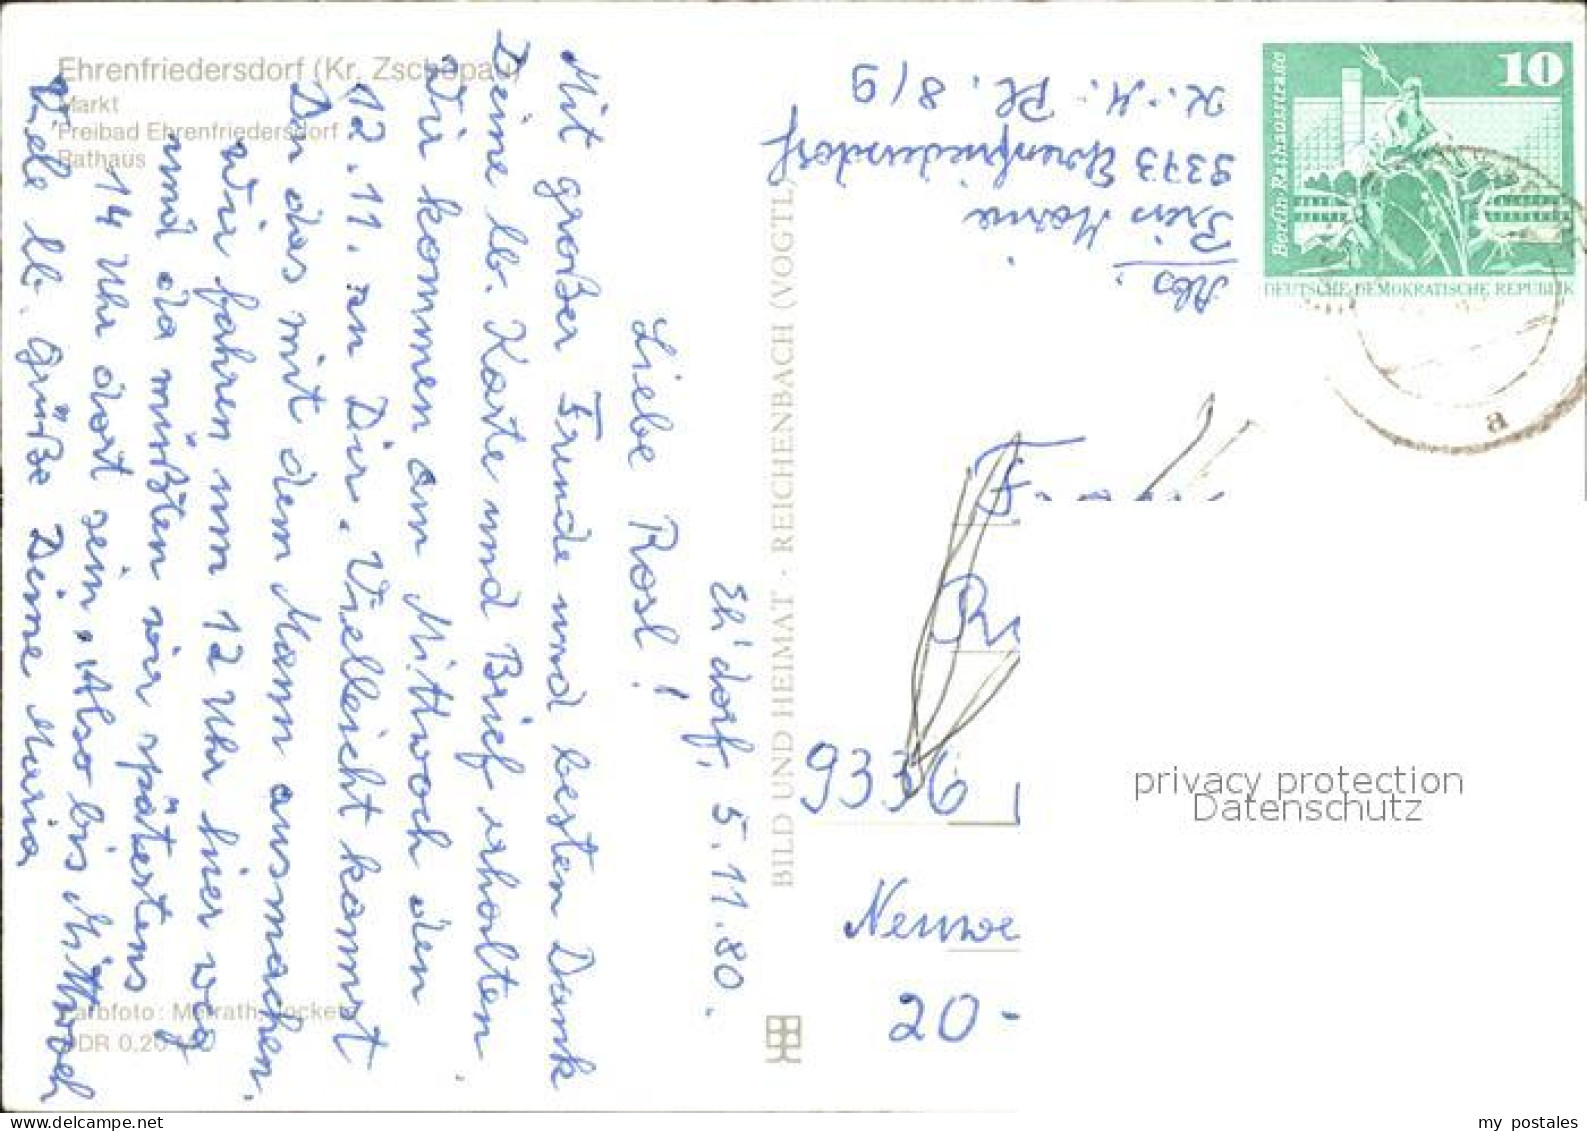 Ehrenfriedersdorf (Kr. Zschopau)
Markt
Freibad Ehrenfriedersdorf
Rathaus
Eh'dorf, 5.11.80.
Liebe Rosl!
Mit großer Freunde und besten Dank
Deine lb. Karte und Brief erhalten.
Wir kommen am Mittwoch den
12.11. an Dir. Vielleicht kannst
Du das mit dem Mann ausmachen.
Wir fahren um 12 Uhr hier weg
und da müßten wir spätestens
14 Uhr dort sein. Also bis Mittwoch
Viele lb. Grüße Deine Maria
Farbfoto:
DDR 0,20 M
BILD UND HEIMAT · REICHENBACH (VOGTL)
Abs.
Maria
9373 Ehrenfriedersdorf
K.-M.-Pl. 8/9
10
Berlin, Rathausstraße
DEUTSCHE DEMOKRATISCHE REPUBLIK
a
9336
20 -
privacy protection
Datenschutz
my postales